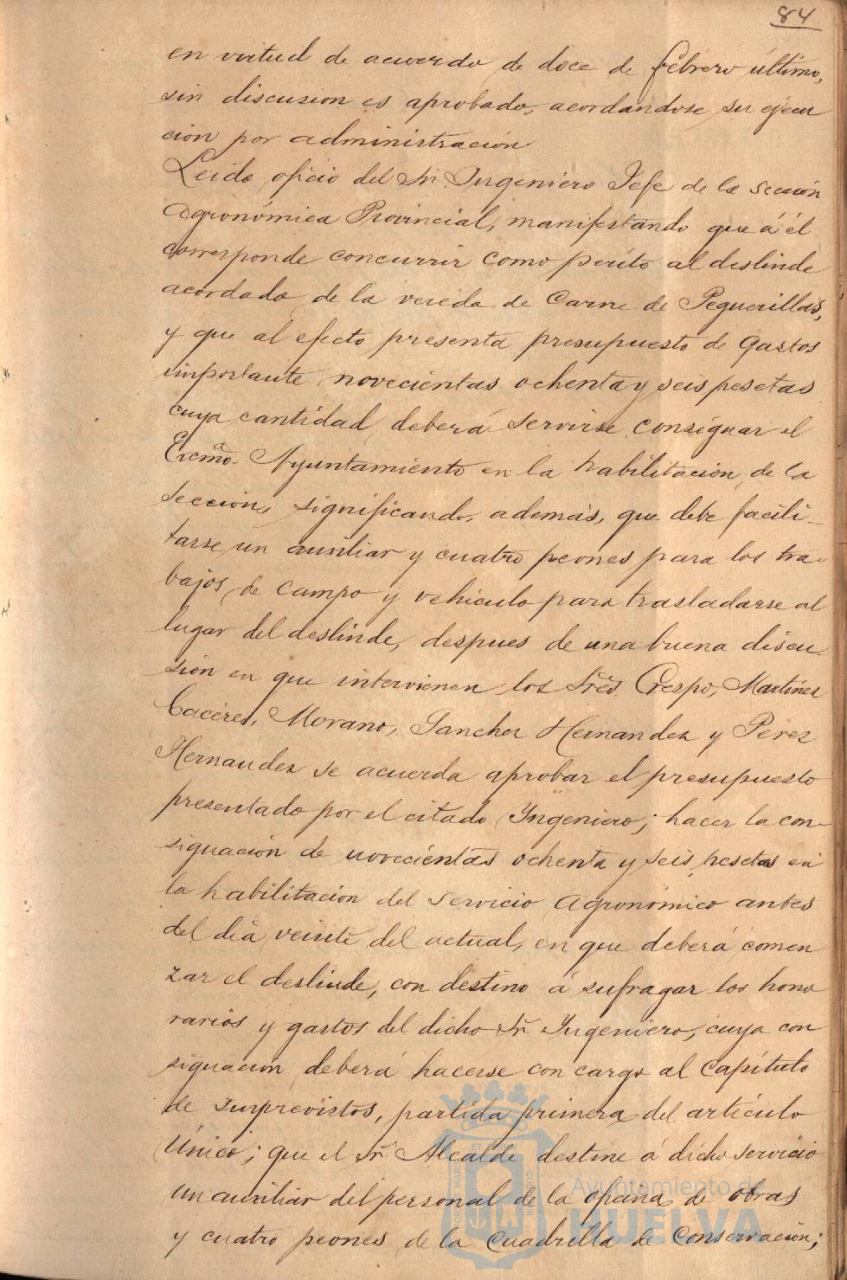 84
en virtud de acuerdo de doce de febrero último,
sin discusion es aprobado, acordandose su ejecu
ción por administración
Leido oficio del Sr. Ingeniero Jefe de la sección
Agronómica Provincial, manifestando que á él
corresponde concurrir como perito al deslinde
acordado de la vereda de Carne de Peguerillas,
y que al efecto presenta presupuesto de gastos
importante novecientas ochenta y seis pesetas
cuya cantidad deberá servirse consignar el
Excmo. Ayuntamiento en la habilitación de la
sección, significando, además, que debe facili-
tarse un auxiliar y cuatro peones para los tra-
bajos de campo y vehiculo para trasladarse al
lugar del deslinde, despues de una buena discu-
sión en que intervienen los Sres. Crespo, Martinez
Cacéres, Morano, Sanchez Hernandez y Perez
Hernandez se acuerda aprobar el presupuesto
presentado por el citado Ingeniero; hacer la con-
signación de novecientas ochenta y seis pesetas en
la habilitacion del Servicio Agronómico antes
del dia veinte del actual, en que deberá comen
zar el deslinde, con destino á sufragar los hono
rarios y gastos del dicho Sr. Ingeniero, cuya con
signacion deberá hacerse con cargo al Capítulo
de Imprevistos, partida primera del artículo
Único; que el Sr. Alcalde destine á dicho servicio
un auxiliar del personal de la oficina de obras
y cuatro peones de la Cuadrilla de Conservación;
Ayuntamiento de
HUELVA